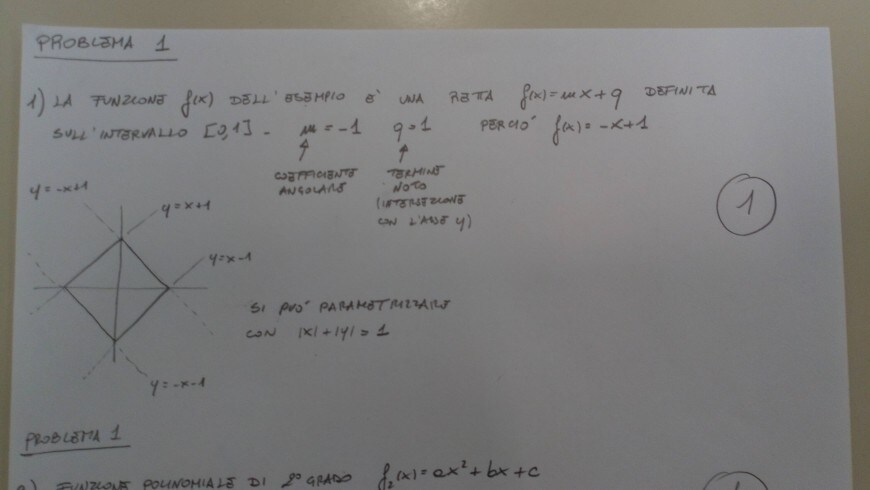 PROBLEMA 1
1) LA FUNZIONE f(x) DELL'ESEMPIO E' UNA RETTA f(x)=mx+q DEFINITA
SULL'INTERVALLO [0,1]. m=-1 q=1 PERCIO' f(x)=-x+1
COEFFICIENTE
ANGOLARE
TERMINE
NOTO
(INTERSEZIONE
CON L'ASSE y)
y=-x+1
y=x+1
1
y=x-1
SI PUO' PARAMETRIZZARE
CON |x|+|y|=1
y=-x-1
PROBLEMA 1
2) FUNZIONE POLINOMIALE DI 2° GRADO f₂(x)=ax²+bx+c